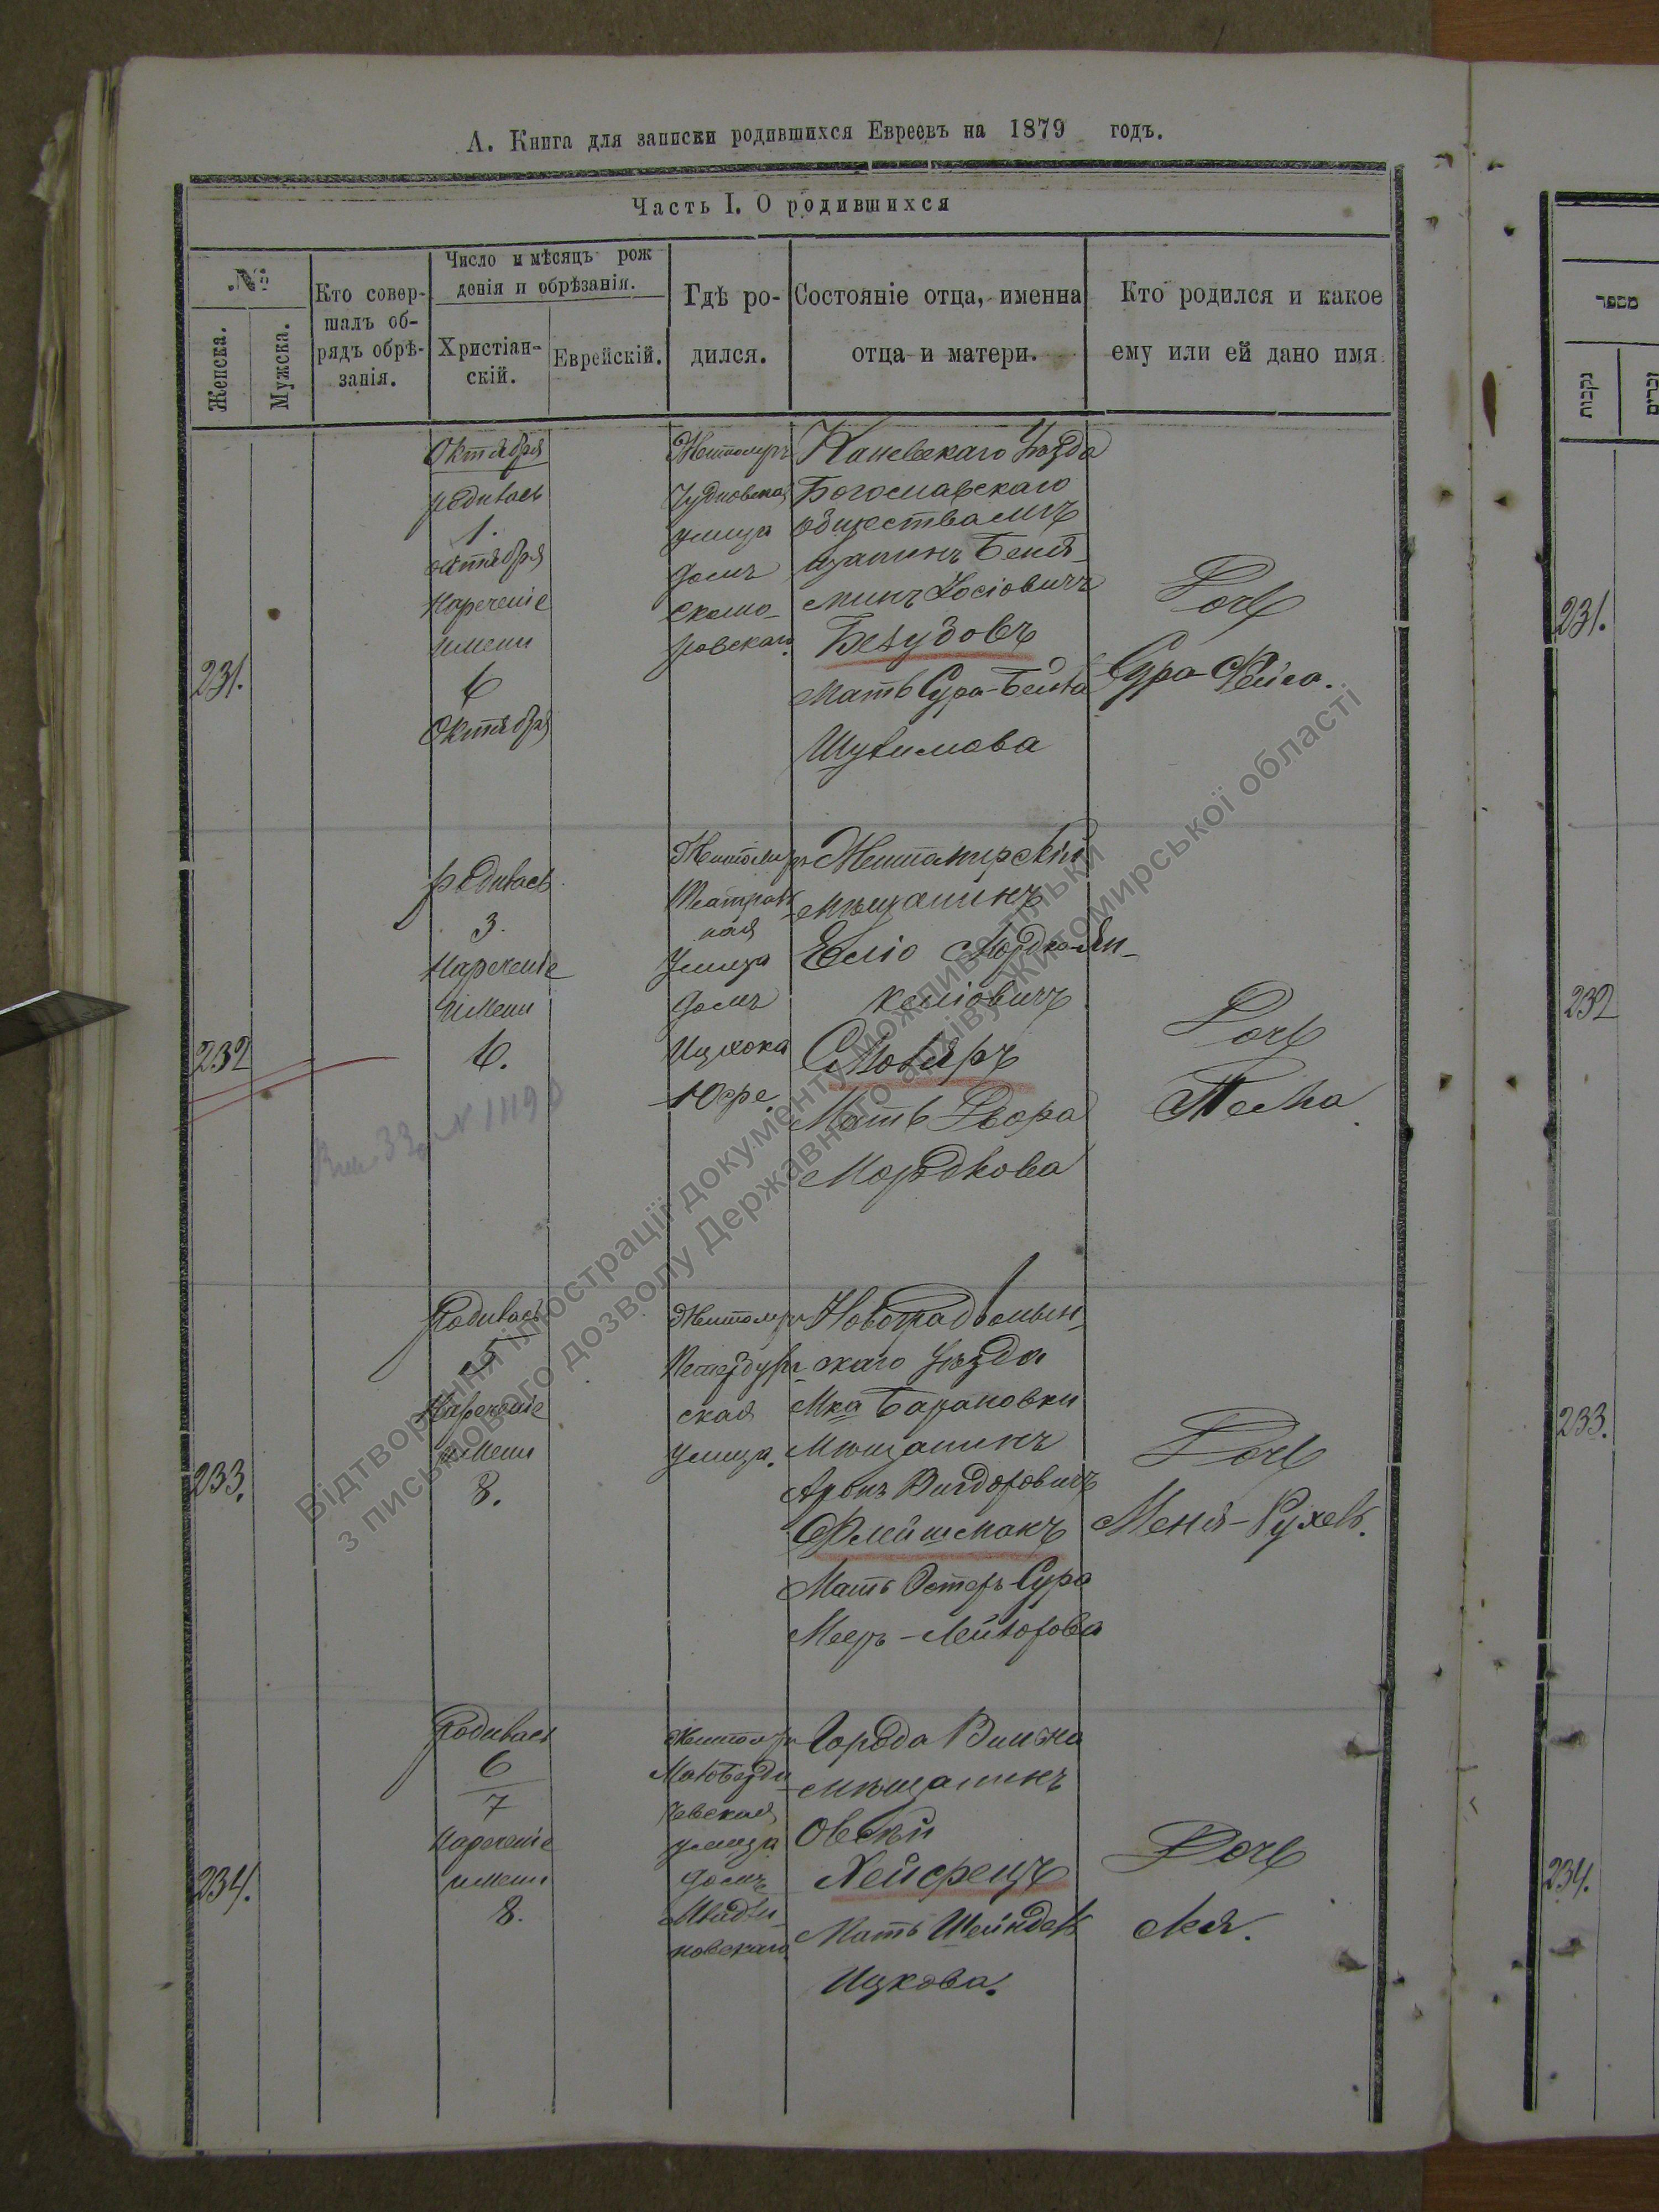 А. Книга для записки родившихся Евреевъ на 1879 годъ.
Часть I. О родившихся
№
Женска.
Мужска.
Кто совер-
шалъ об-
рядъ обрѣ-
занія.
Число и мѣсяцъ рож
денія и обрѣзанія.
Христіан-
скій.
Еврейскій.
Гдѣ ро-
дился.
Состояніе отца, именна
отца и матери.
Кто родился и какое
ему или ей дано имя
231.
Октября
родилась
1.
октября
Нареченіе
имени
6
Октября
Житомиръ
Чудновская
улица
домъ
Скомо-
ровскаго.
Каневскаго Уѣзда
Богославскаго
общества мѣ
щанинъ Бенія-
минъ Іосіовичъ
Безудовъ
Мать Сура-Бейла
Шулимова
Дочь
Сура-Фейга.
232
родилась
3.
Нареченіе
имени
6.
Житомиръ
Театраль
ная
Улица
домъ
Ицхока
Юфе
Житомирскій
мѣщанинъ
Еліо Мордко-Ян-
келіовичъ
Столяръ
Мать Двора
Мордкова
Дочь
Песка.
233.
Родилась
5
Нареченіе
имени
8.
Житомиръ
Петербург-
ская
Улица.
Новоградволын-
скаго Уѣзда
Мка Барановки
Мѣщанинъ
Аронъ Вигдоровичъ
Флейшмакъ
Мать Эстеръ-Сура
Мееръ-Лейзорова
Дочь
Меня-Рухель.
234.
Родилась
6
7
Нареченіе
имени
8.
Житомиръ
Мало Берди-
чевская
улица
домъ
новскаго
Города Вильна
мѣщанинъ
Овсѣй
Хейфецъ
Мать Шейндель
Ицкова.
Дочь
Лея.
מספר
נקבות
זכרים
231.
232
233.
234.
Відтворення ілюстрації документу можливо тільки
з письмового дозволу Державного архіву Житомирської області